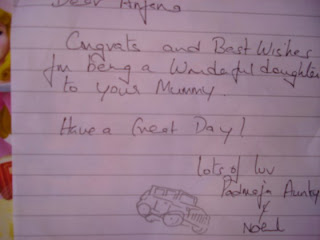 Dear Anjena
Congrats and Best Wishes
for being a Wonderful daughter
to your Mummy.
Have a Great Day!
Lots of luv
Padmaja Aunty
Noel